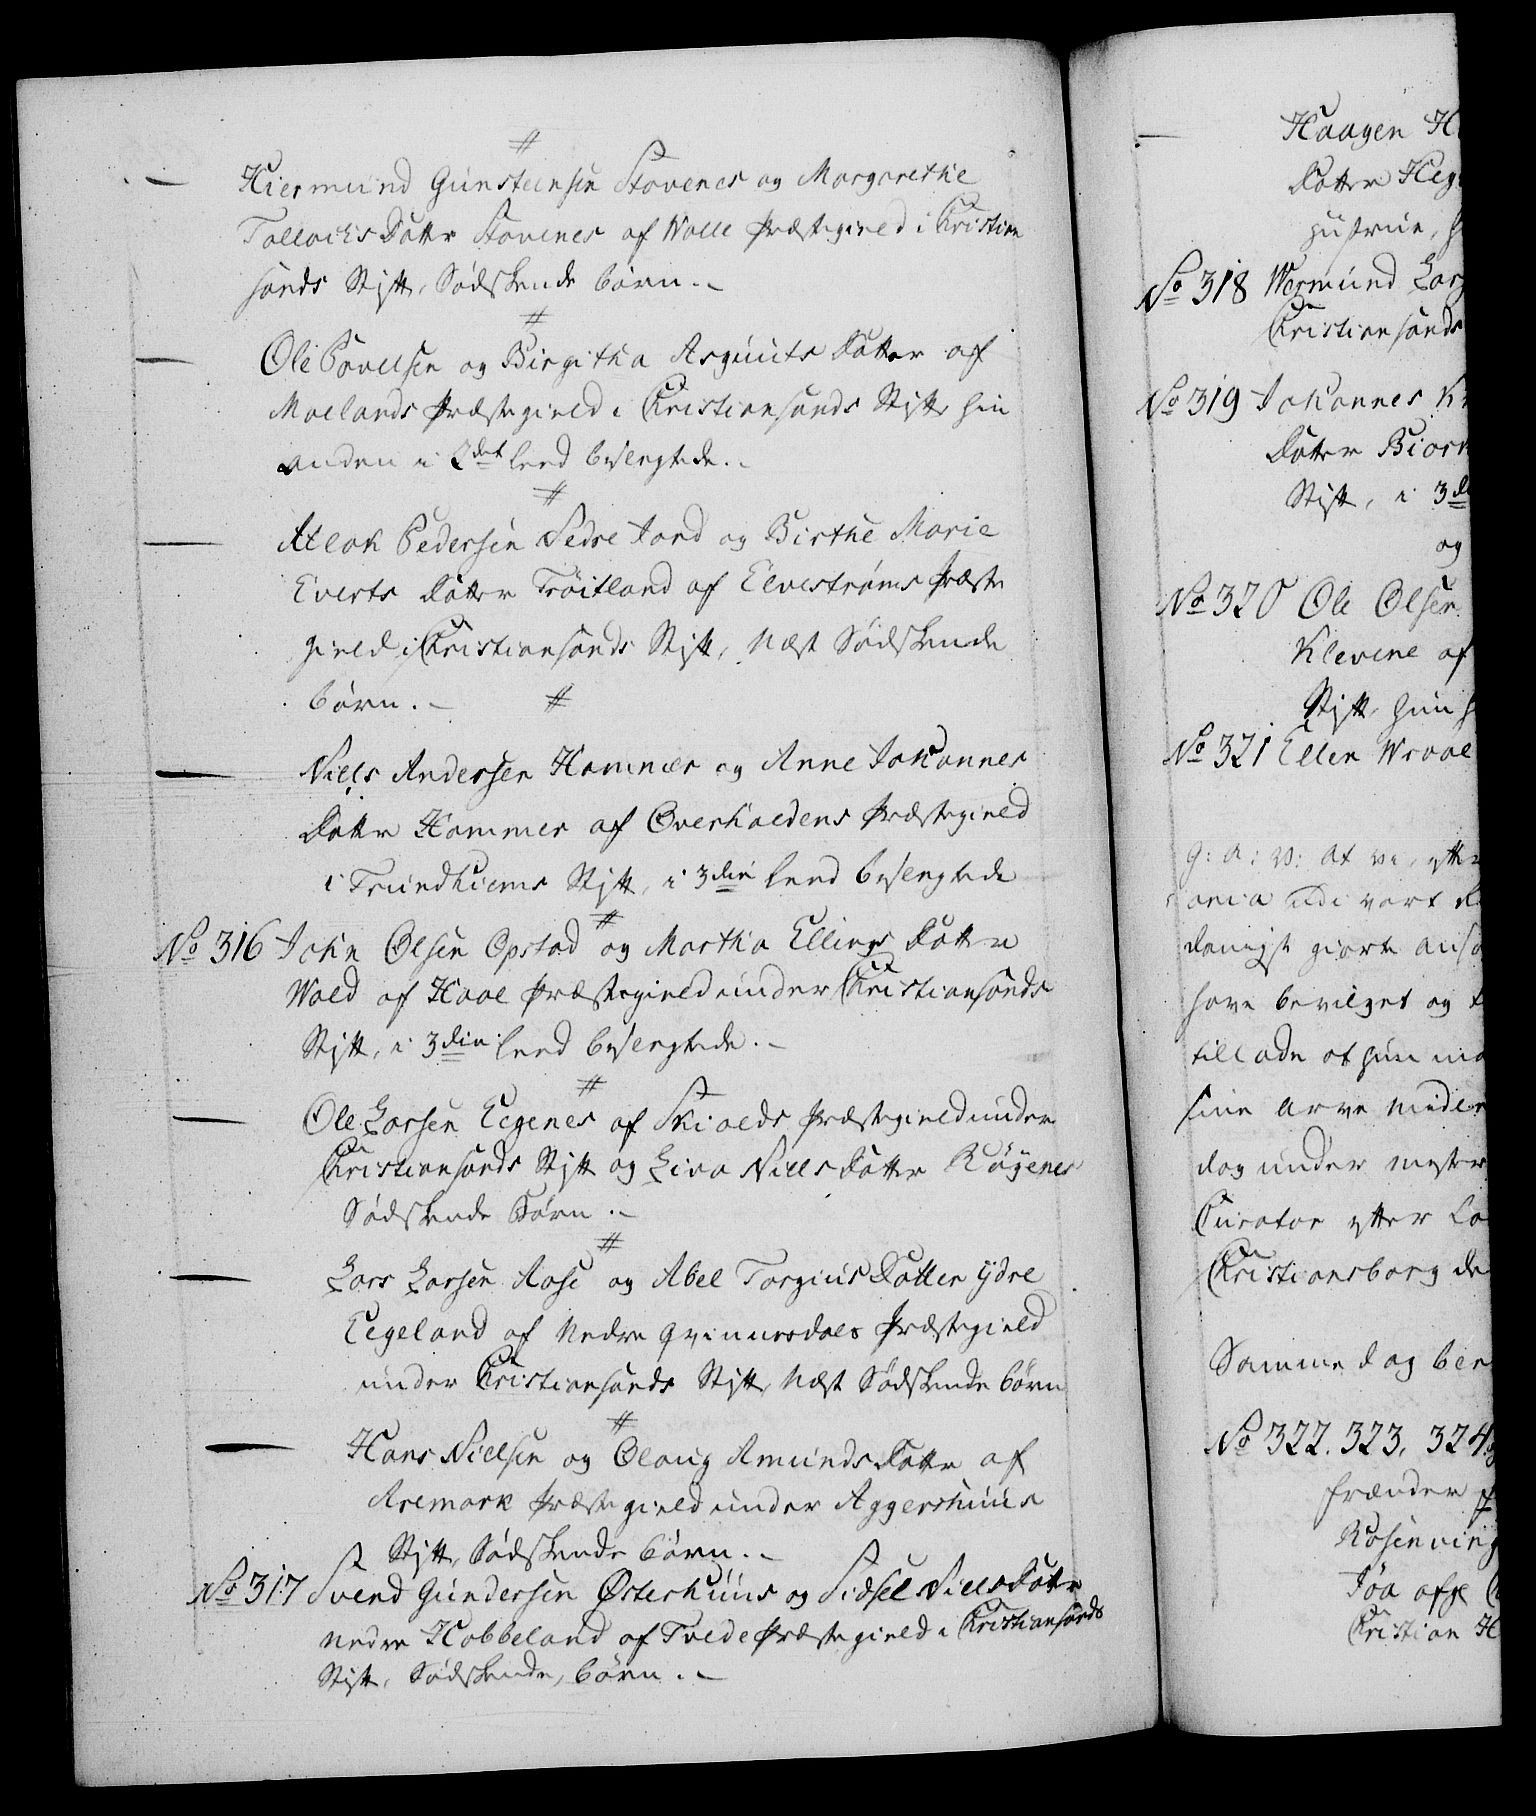 #
— Hiermund Gunsteinsen Stavenes og Margarethe
Tallachs Datter Stavenes af Walle Præstegield i Christian
sands Stift, Södskende börn. –
#
— Ole Povelsen og Birgitha Asguuts Datter af
Molands Præstegield i Christiansands Stift, hin
anden i 2det leed beslegtede. –
#
— Atlak Pedersen Fedre Jord og Birthe Marie
Everts Datter Tröitland af Elvestrøms Præste
gield i Christiansands Stift, Næst Södskende
börn. –
#
— Niels Andersen Hammer og Anne Johannes
Datter Hammer af Overhaldens Præstegield
i Trundhiems Stift, i 3die leed beslegtede
#
No 316 John Olsen Opstad og Martha Ellings Datter
Wold af Haae Præstegield under Christiansands
Stift, i 3die leed beslegtede. –
#
— Ole Larsen Eegenes af Skiolds Præstegield under
Christiansands Stift og Liva Niels Datter Röyenes
Södskende Börn. –
#
— Lars Larsen Aase og Abel Torgius Datter ÿdre
Eegeland af Nedre Qvinnesdals Præstegield
under Christiansands Stift, Næst Södskende börn
#
— Hans Nielsen og Olaug Amunds Datter af
Aremark Præstegield under Aggershuus
Stift, Södskende börn. –
No 317 Svend Gundersen Østerhuus og Sidsel Niels Datter
nedre Hobbeland af Tvede Præstegield i Christiansands
Stift, Södskende, börn. –
— Haagen
Datter
hustrue,
No 318 Wermund
Christiansands
No 319 Johannes
Datter
Stift, i
og
No 320 Ole Olsen
Klevene af
Stift, hun
No 321 Ellen
G: A: V: At vi, efter
udi vort
danigst giorte
have bevilget og
tillade at hun
sine Arve Midler
dog under
Curator efter
Christiansborg
Samme dag
No 322. 323. 324
frænder
Christian